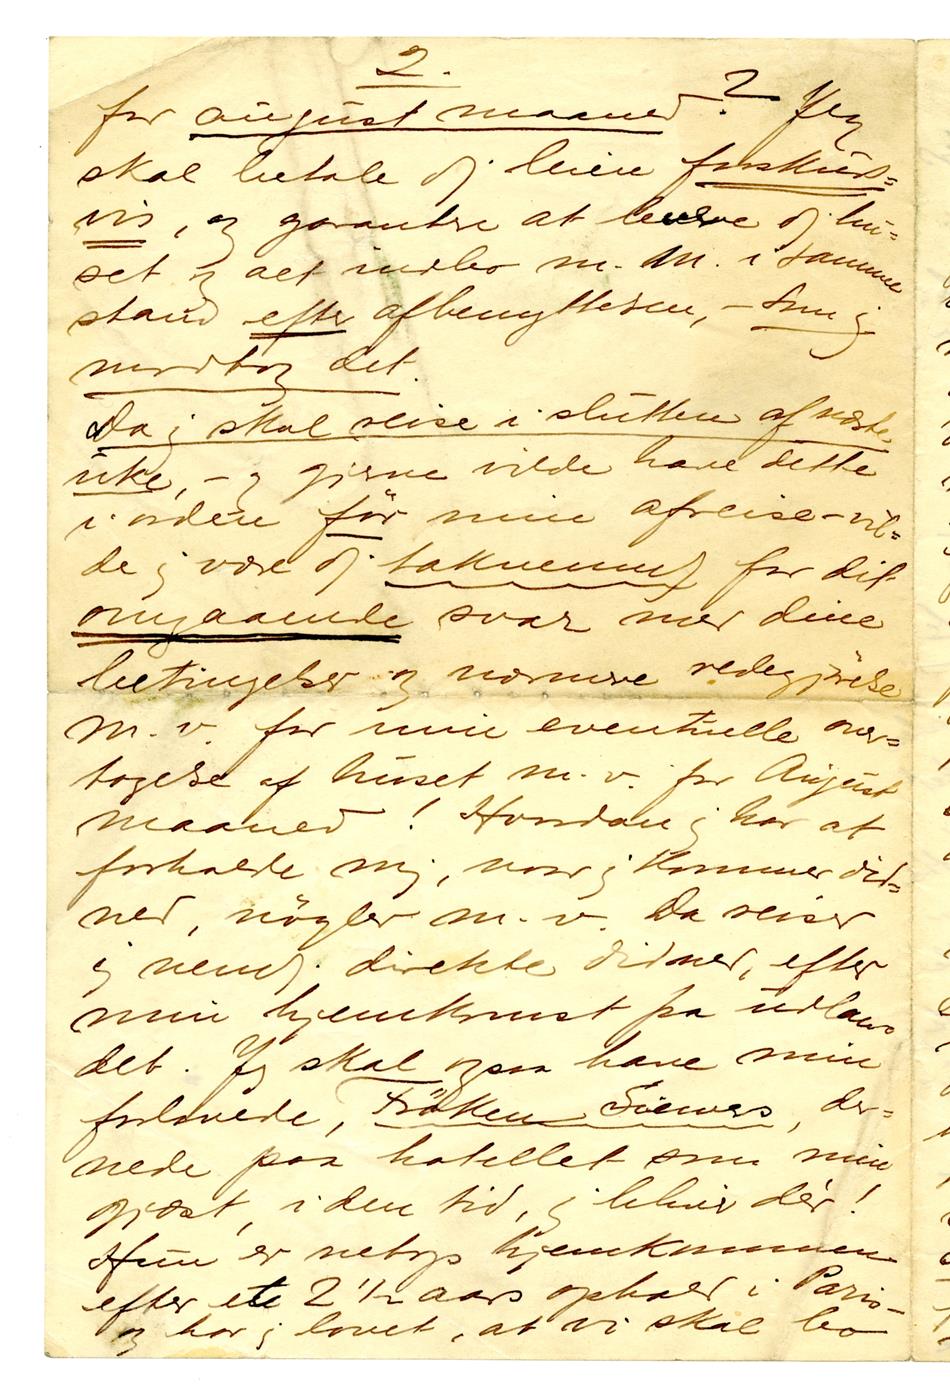 2.
for august maaned? Jeg
skal betale dig leien forskuds=
vis, og garantere at levere dig hu=
set og alt indbo m. m. i samme
stand efter afbenyttelsen, – som jeg
modtog det.
Da jeg skal reise i slutten af næste
uke, – og gjerne vilde have dette
i orden før min afreise – vil=
de jeg være dig taknemmelig for dit
omgaaende svar med dine
betingelser og nærmere redegjörelse
m. v. for min eventuelle over=
tagelse af huset m. v. for August
maaned! Hvordan jeg har at
forholde mig, naar jeg kommer did=
ned, nögler m. v. Da reiser
jeg nemlig direkte didned, efter
min hjemkomst fra udlan=
det. Jeg skal ogsaa have min
forlovede, Fröken Siewers, der=
nede paa hotellet som min
gjæst, i den tid, jeg bliver dér!
Hun er netop hjemkommen
efter ete 2 ½ aars ophold i Paris –
og har jeg lovet, at vi skal bo